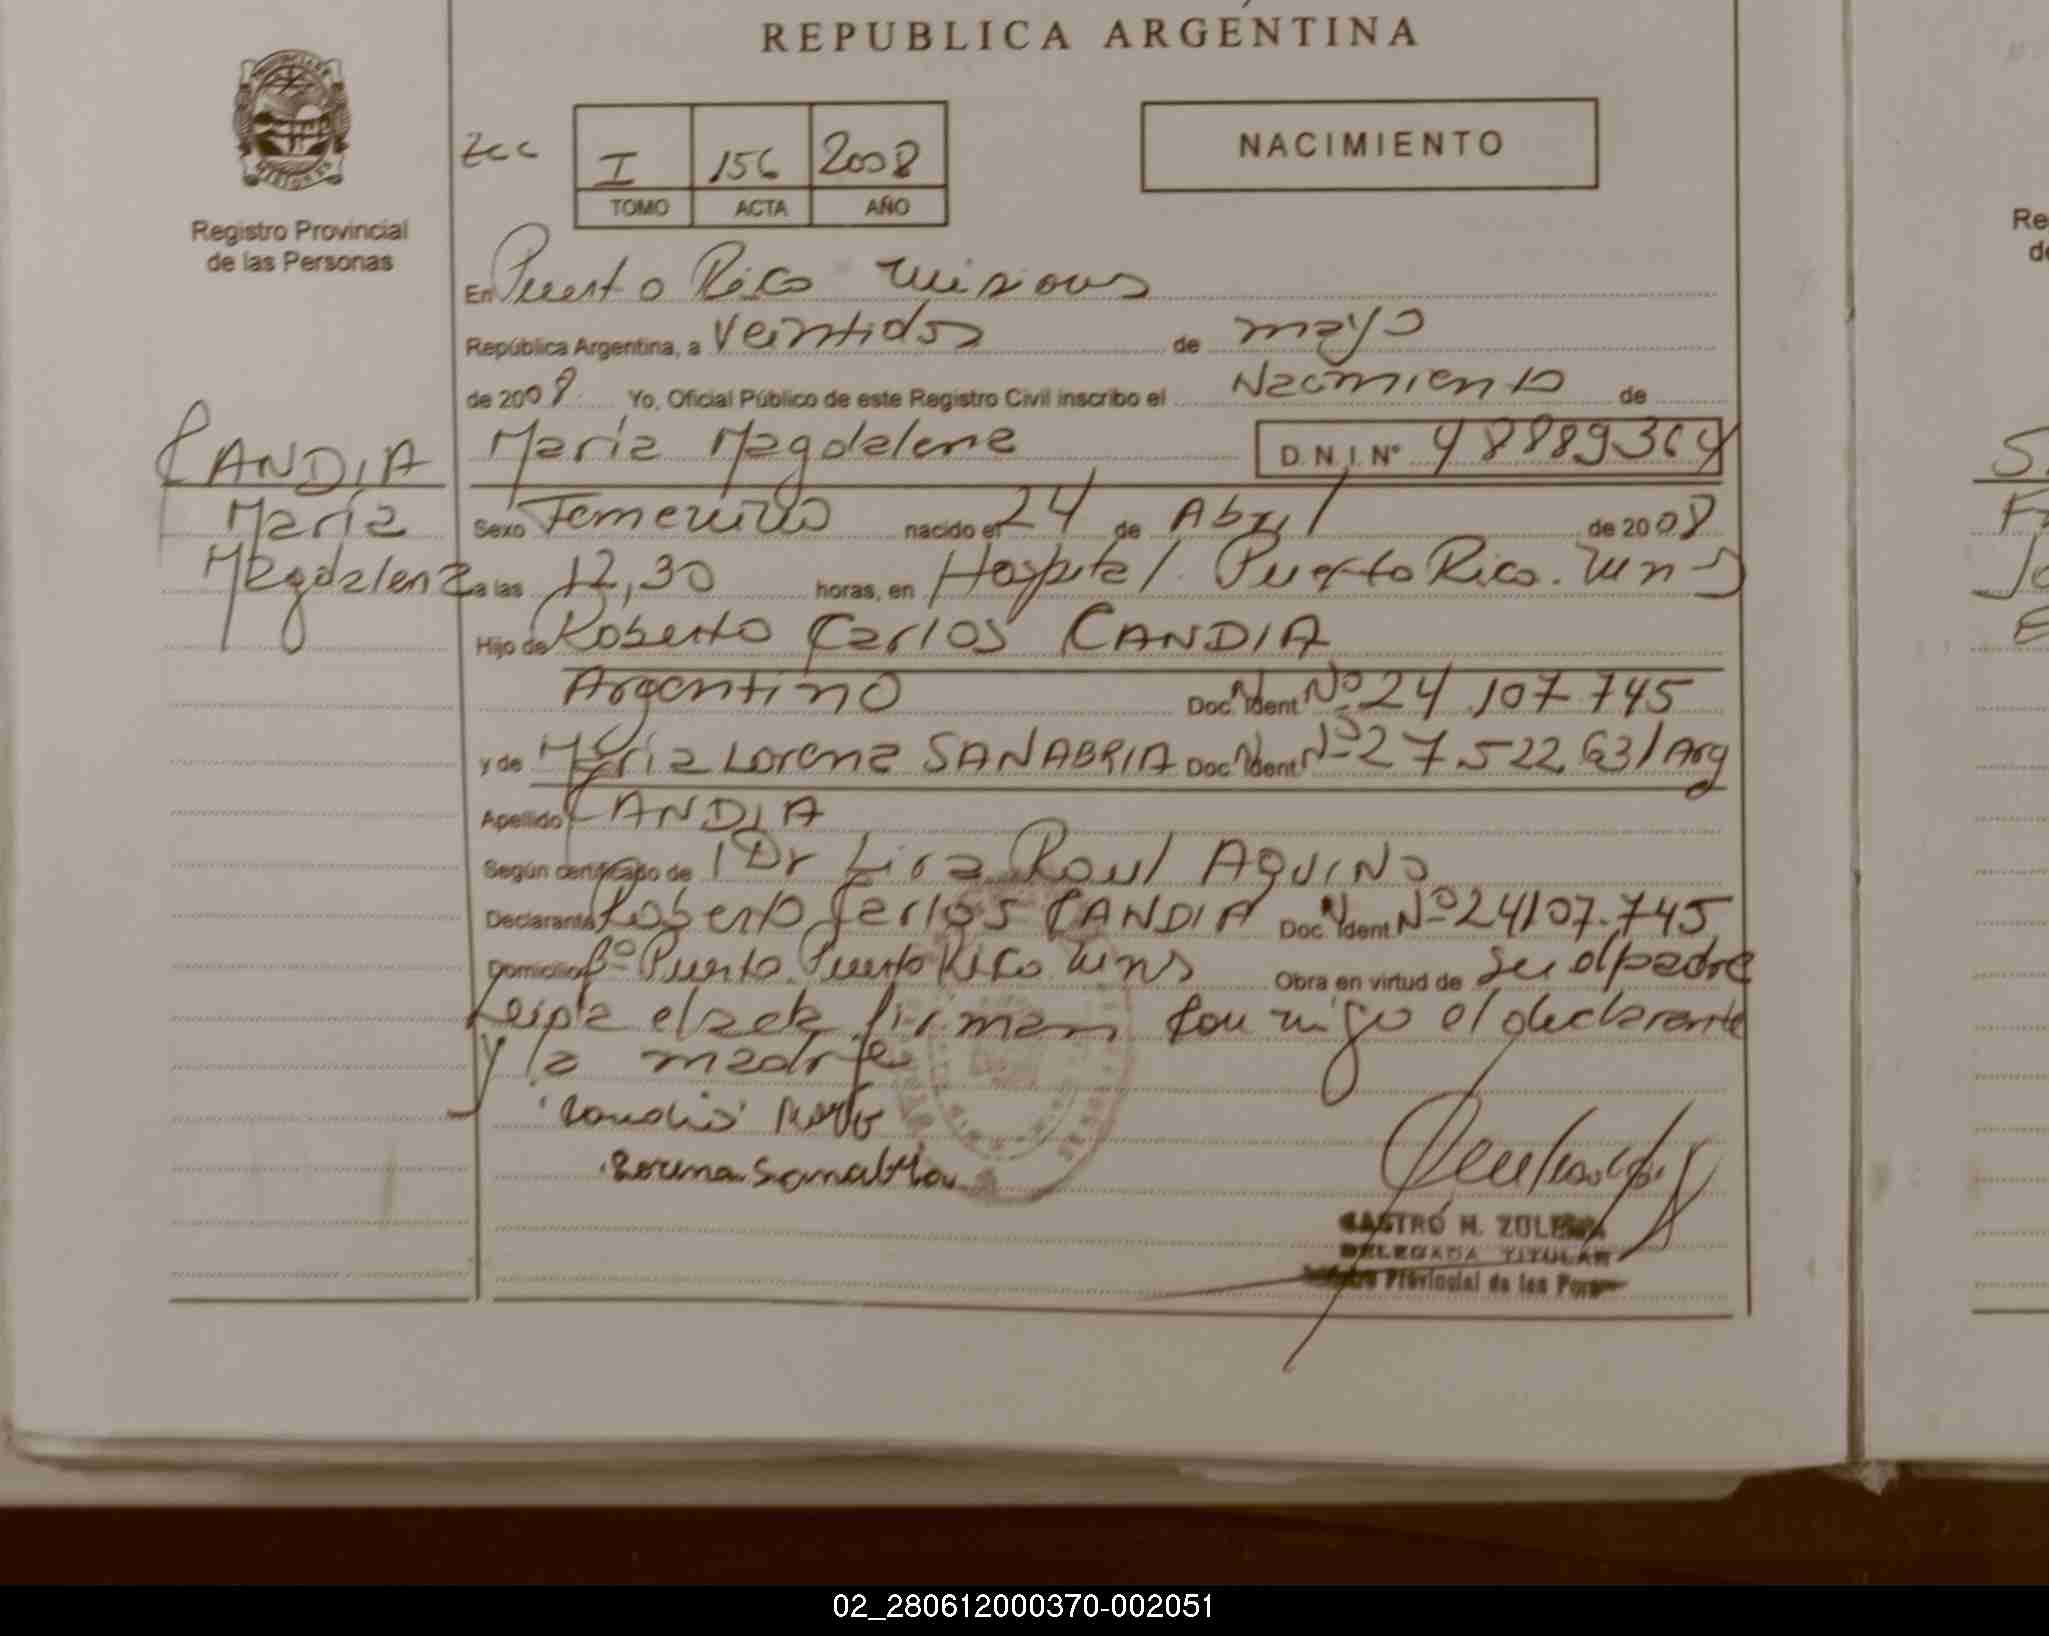 REPUBLICA ARGENTINA
Registro Provincial
de las Personas
I 156 2008
TOMO ACTA AÑO
NACIMIENTO
En Puerto Rico Misiones
República Argentina, a veintidos de mayo
de 2008. Yo, Oficial Público de este Registro Civil inscribo el Nacimiento de
CANDIA
María
Magdalena
María Magdalena D.N.I. Nº 48889364
Sexo Femenino nacido el 24 de Abril de 2008
a las 12,30 horas, en Hospital. Puerto Rico. Mns
Hijo de Roberto Carlos CANDIA
Argentino Doc. Ident Nº 24.107.745
y de María Lorena SANABRIA Doc. Ident Nº 27.522.631 Arg
Apellido CANDIA
Según certificado de Dr Raul AQUINO
Declarante Roberto Carlos CANDIA Doc. Ident. Nº 24107.745
Domicilio Bº Puerto. Puerto Rico. Mns Obra en virtud de ser el padre
Leida el acta firman conmigo el declarante
y la madre
Lorena Sanabria
CASTRO N. ZULEMA
DELEGADA TITULAR
Registro Provincial de las Pers
Re
de
02_280612000370-002051